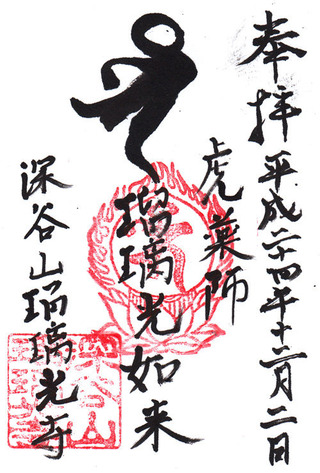 奉拝 平成二十四年十二月二日
虎薬師
瑠璃光如来
深谷山瑠璃光寺